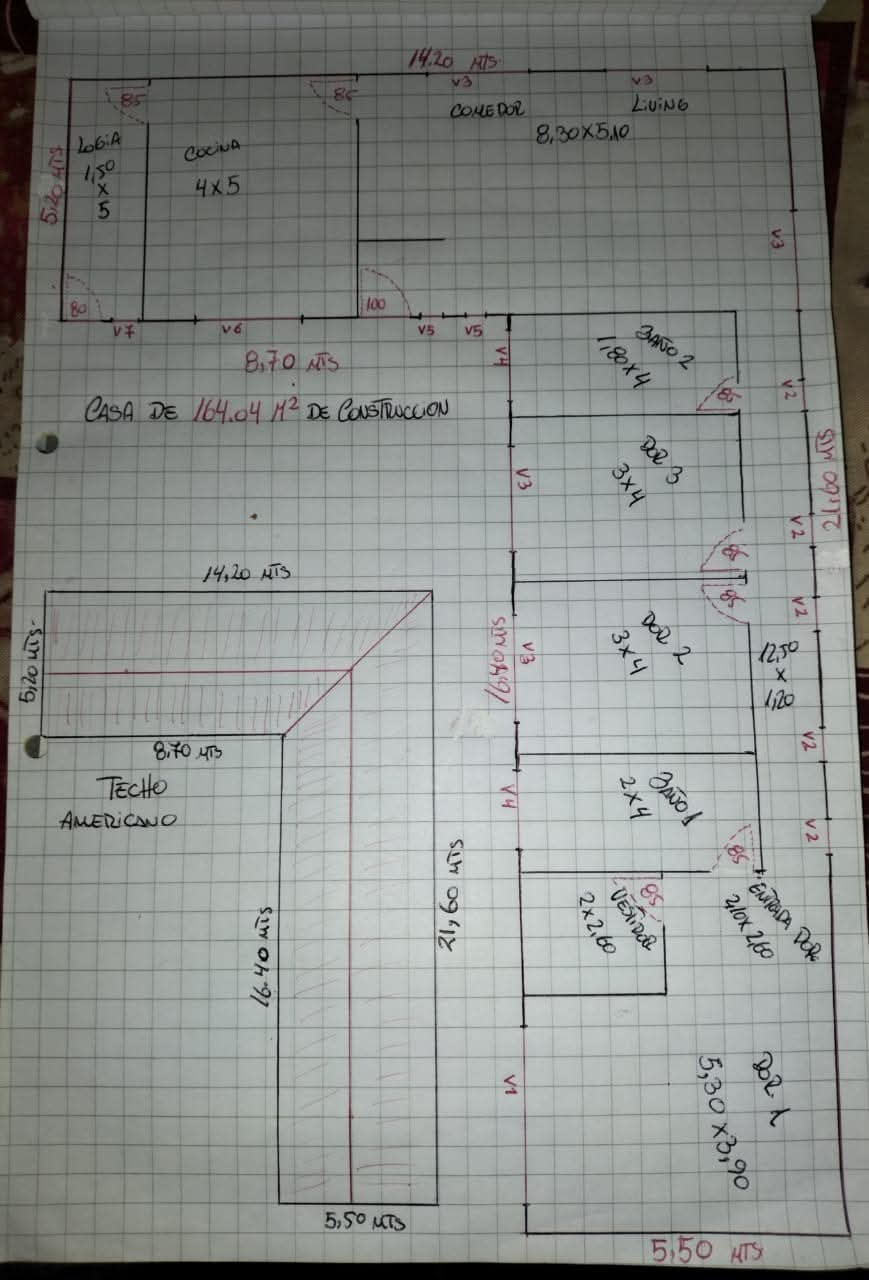 14.20 MTS.
V3
V3
85
85
COMEDOR
LIVING
8,30 X 5,10
LOGIA
1,50
X
5
COCINA
4 X 5
5,20 MTS
V3
80
100
V7
V6
V5
V5
8,70 MTS
V4
BAÑO 2
1,80 X 4
85
V2
CASA DE 164.04 M² DE CONSTRUCCION
DOR 3
3 X 4
V3
21,60 MTS
V2
85
14,20 MTS
85
V2
5,20 MTS.
16,40 MTS
V3
DOR 2
3 X 4
12,50
X
1,20
8,70 MTS
V2
TECHO
AMERICANO
V4
BAÑO 1
2 X 4
V2
85
21,60 MTS
85
VESTIDOR
2 X 2,60
ENTRADA DOR
2,10 X 2,60
16.40 MTS
V1
DOR 1
5,30 X 3,90
5,50 MTS
5,50 MTS